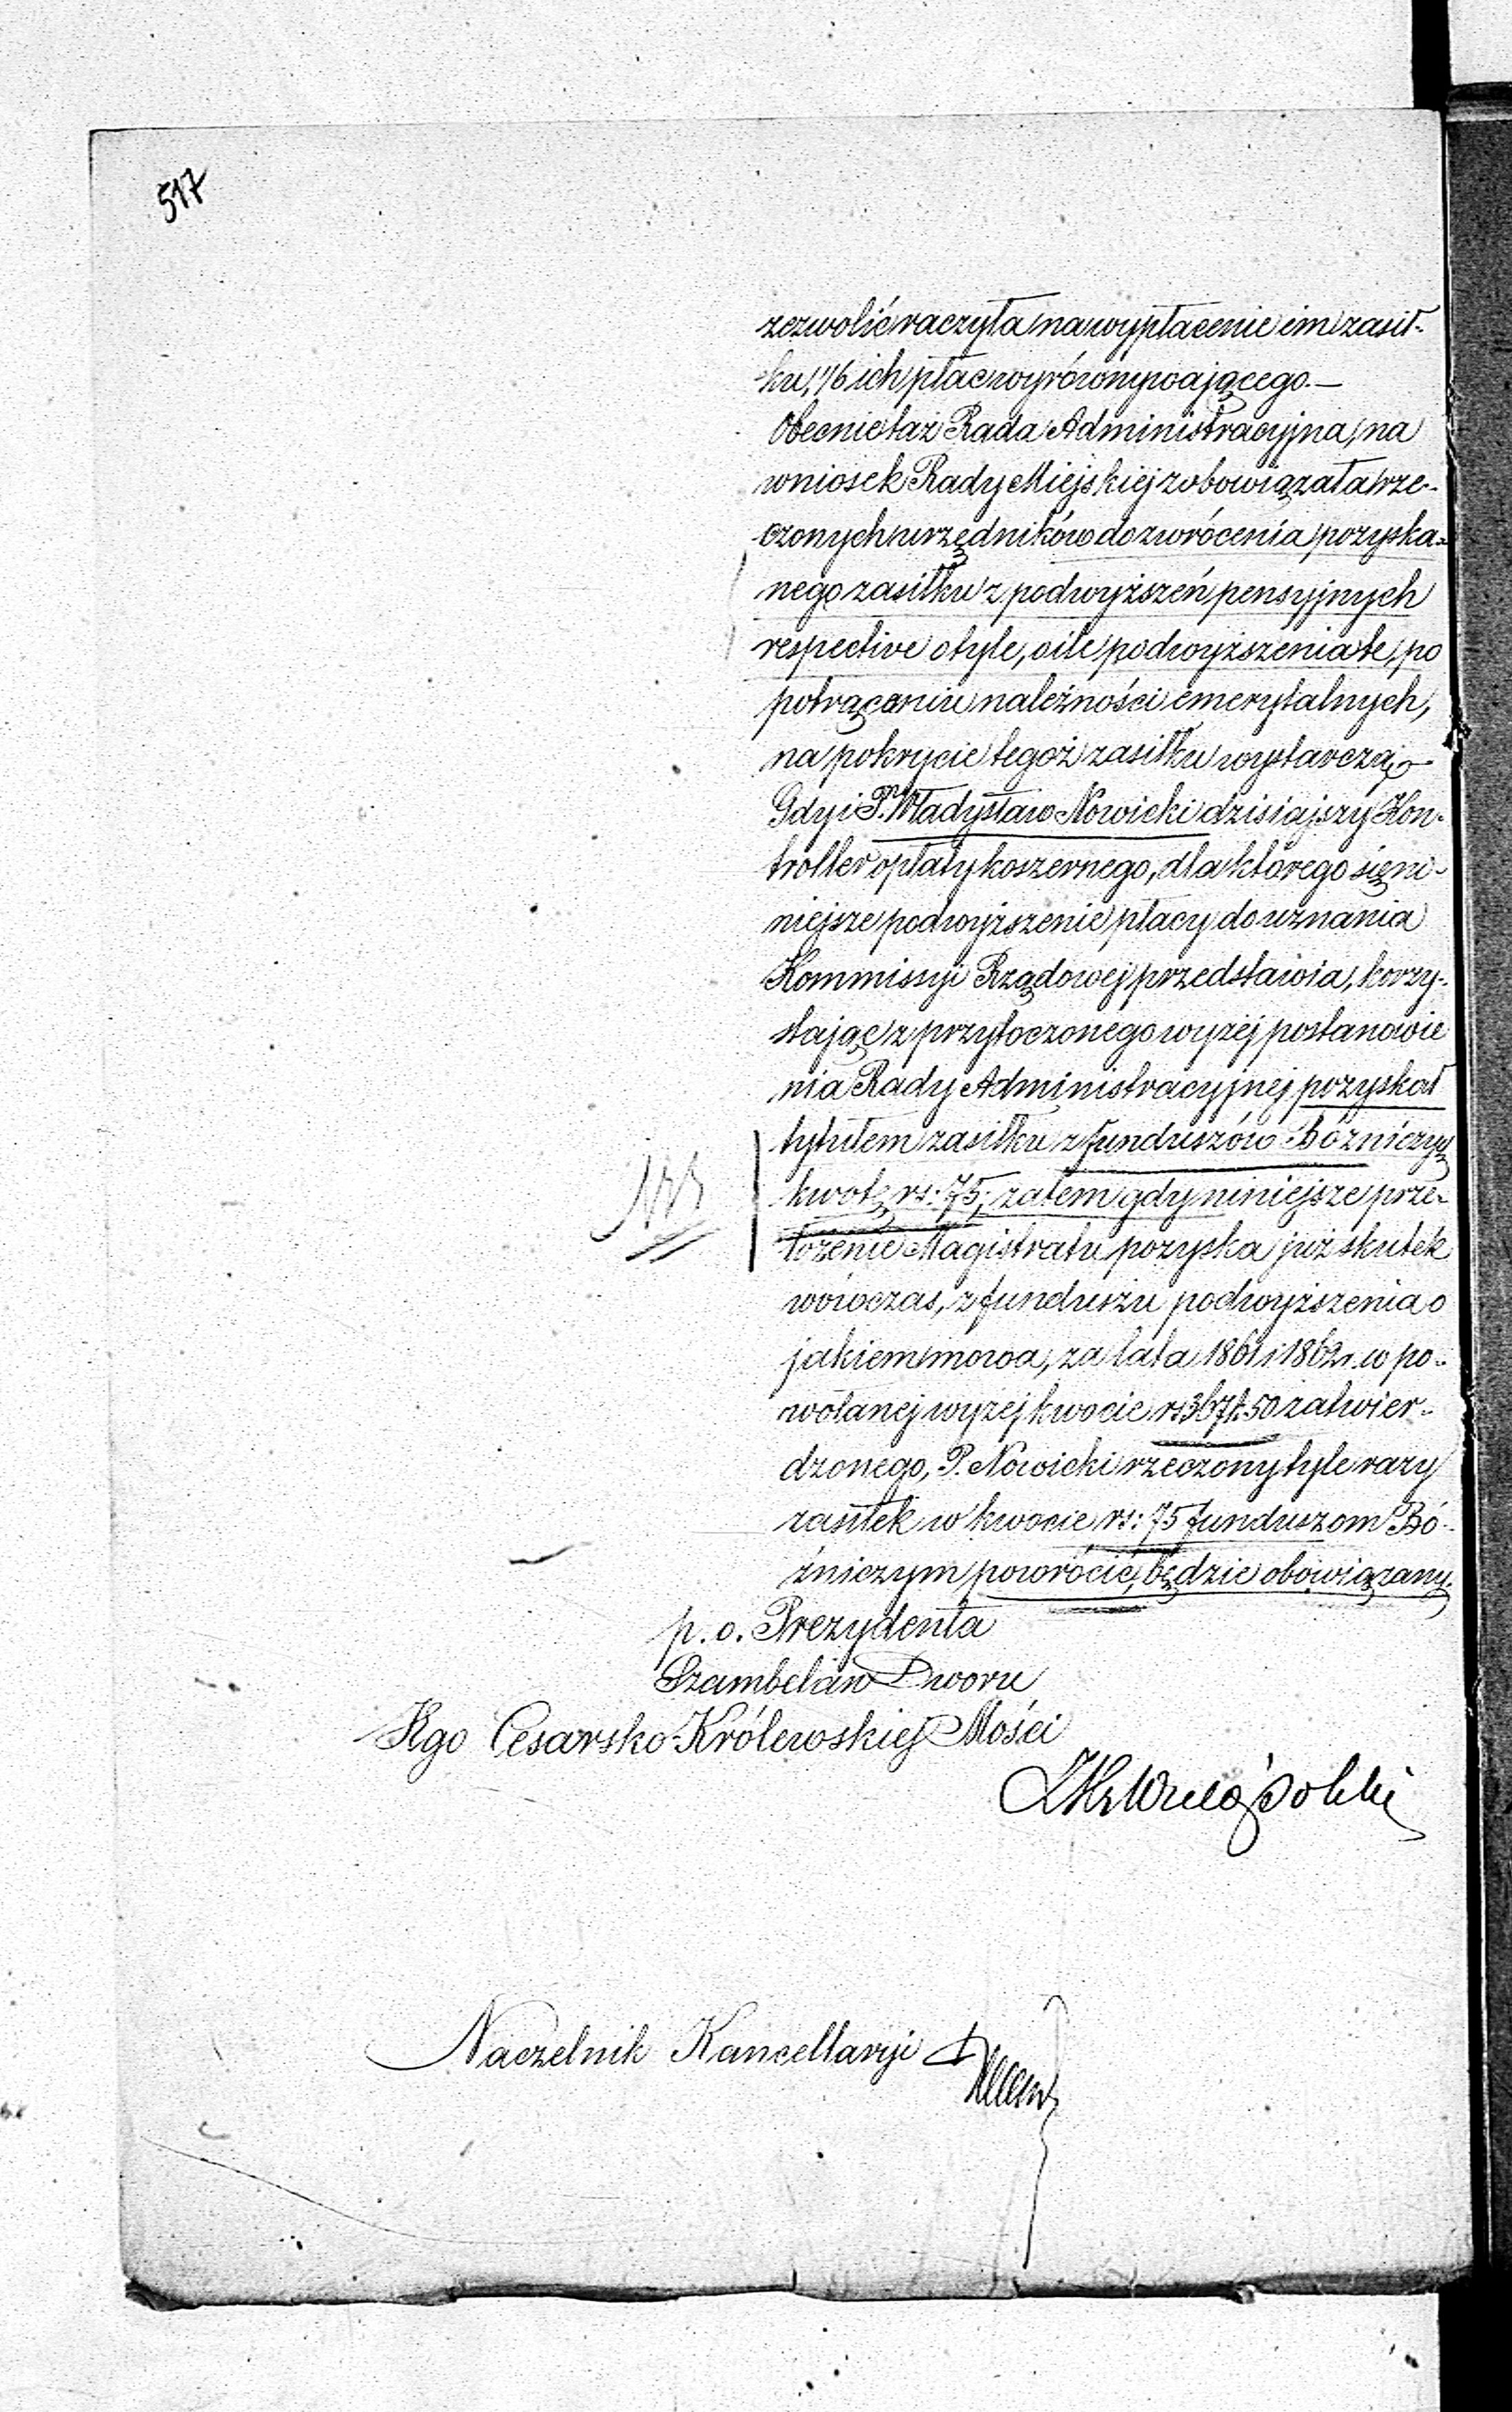 517
zezwolić raczyła na wypłacenie im zasił-
ku, 1/6 ich płac wyrównywającego.—
Obecnie taż Rada Administracyjna, na
wniosek Rady Miejskiej zobowiązała rze-
czonych urzędników do zwrócenia pozyska-
nego zasiłku z podwyższeń pensyjnych
respective o tyle, o ile podwyższenia te, po
potrąceniu należności emerytalnych,
na pokrycie tegoż zasiłku wystarczą.—
Gdy i Pn. Władysław Nowicki dzisiajszy Kon-
troller opłaty koszernego, dla którego się ni-
niejsze podwyższenie płacy do uznania
Kommissyi Rządowej przedstawia, korzy-
stając z przytoczonego wyżej postanowie
nia Rady Administracyjnej pozyskał
tytułem zasiłku z funduszów Bóżniczych
kwotę rs: 75; zatem gdy niniejsze prze-
łożenie Magistratu pozyska już skutek
wówczas, z funduszu podwyższenia o
jakiem mowa, za lata 1861 i 1862 r. w po-
wołanej wyżej kwocie rs 367 k. 50 zatwier-
dzonego, P. Nowicki rzeczony tyle razy
zasiłek w kwocie rs: 75 funduszom Bó-
żniczym powrócić, będzie obowiązany.
p. o. Prezydenta
Szambelan Dworu
Jego Cesarsko-Królewskiej Mości
Wielopolski
Naczelnik Kancellaryi